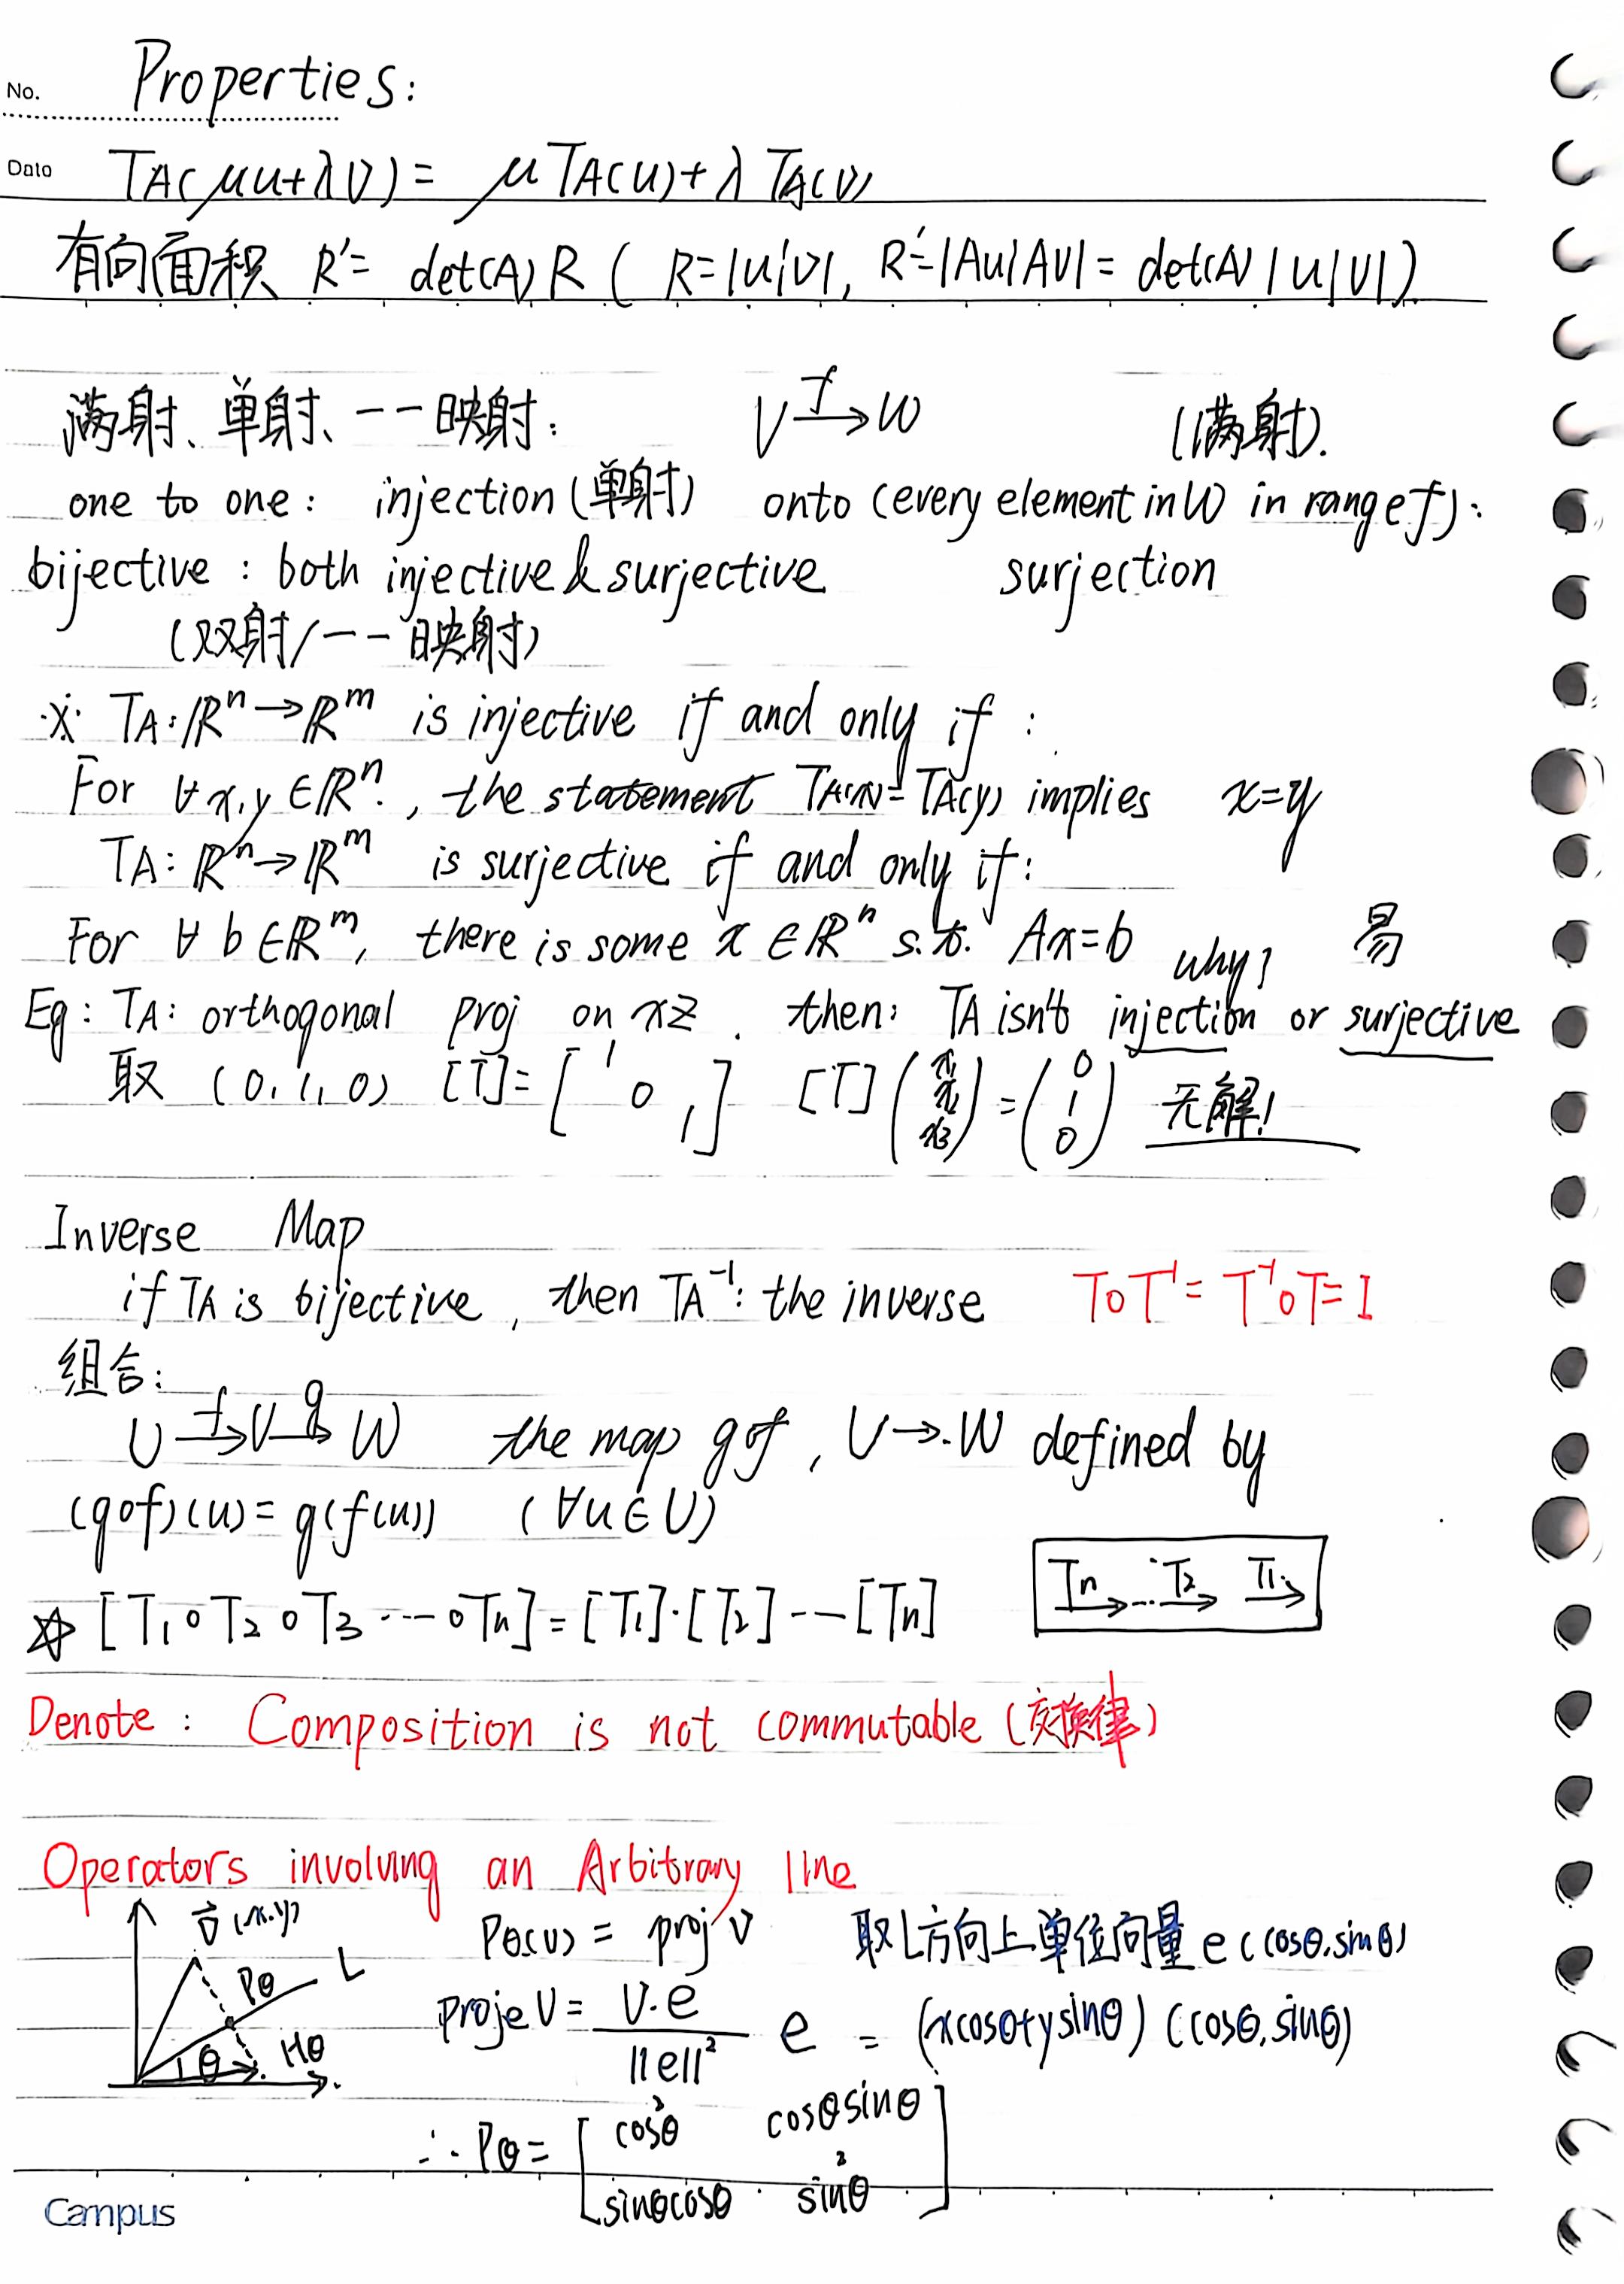 No.
Properties:
Date
TA(μu+λv) = μTA(u)+λTA(v)
有向面积 R'= det(A)R ( R=|u|v|, R'=|Au|Av|= det(A)|u|v|)
满射、单射、一一映射: V f→ W (满射).
one to one: injection (单射) onto (every element in W in range f):
bijective : both injective & surjective surjection
(双射/一一映射)
※ TA: ℝⁿ→ℝᵐ is injective if and only if :
For ∀x,y∈ℝⁿ, the statement TA(x)=TA(y) implies x=y
TA: ℝⁿ→ℝᵐ is surjective if and only if:
For ∀b∈ℝᵐ, there is some x∈ℝⁿ s.t. Ax=b why? 易
Eg: TA: orthogonal proj on xz. then: TA isn't injection or surjective
取 (0,1,0) [T]=[1 0 1] [T](x₁ x₂ x₃)=(0 1 0) 无解!
Inverse Map
if TA is bijective, then TA⁻¹: the inverse T∘T⁻¹= T⁻¹∘T=I
组合:
U f→ V g→ W the map g∘f, U→W defined by
(g∘f)(u)= g(f(u)) (∀u∈U)
☆ [T₁∘T₂∘T₃ ···∘Tn]=[T₁]·[T₂]---[Tn] Tn→...T₂→ T₁→
Denote : Composition is not commutable (交换律)
Operators involving an Arbitrary line
v⃗(x,y) Pθ L θ Hθ
Pθ(v) = proj v 取L方向上单位向量 e (cosθ,sinθ)
proje v = v·e / ||e||² e = (xcosθ+ysinθ) (cosθ,sinθ)
∴ Pθ = [cos²θ cosθsinθ
sinθcosθ sin²θ]
Campus